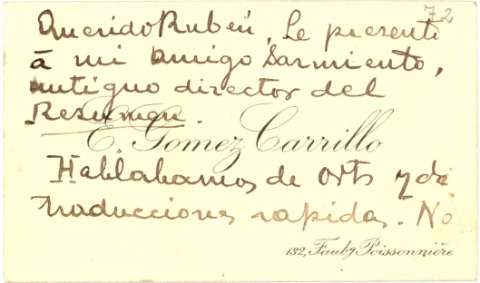 72
Querido Rubén, Le presento
á mi amigo Sarmiento,
antiguo director del
Resumen.
E. Gomez Carrillo
Hablabamos de Orts y de
traducciones rapidas. No
132, Faubg Poissonnière